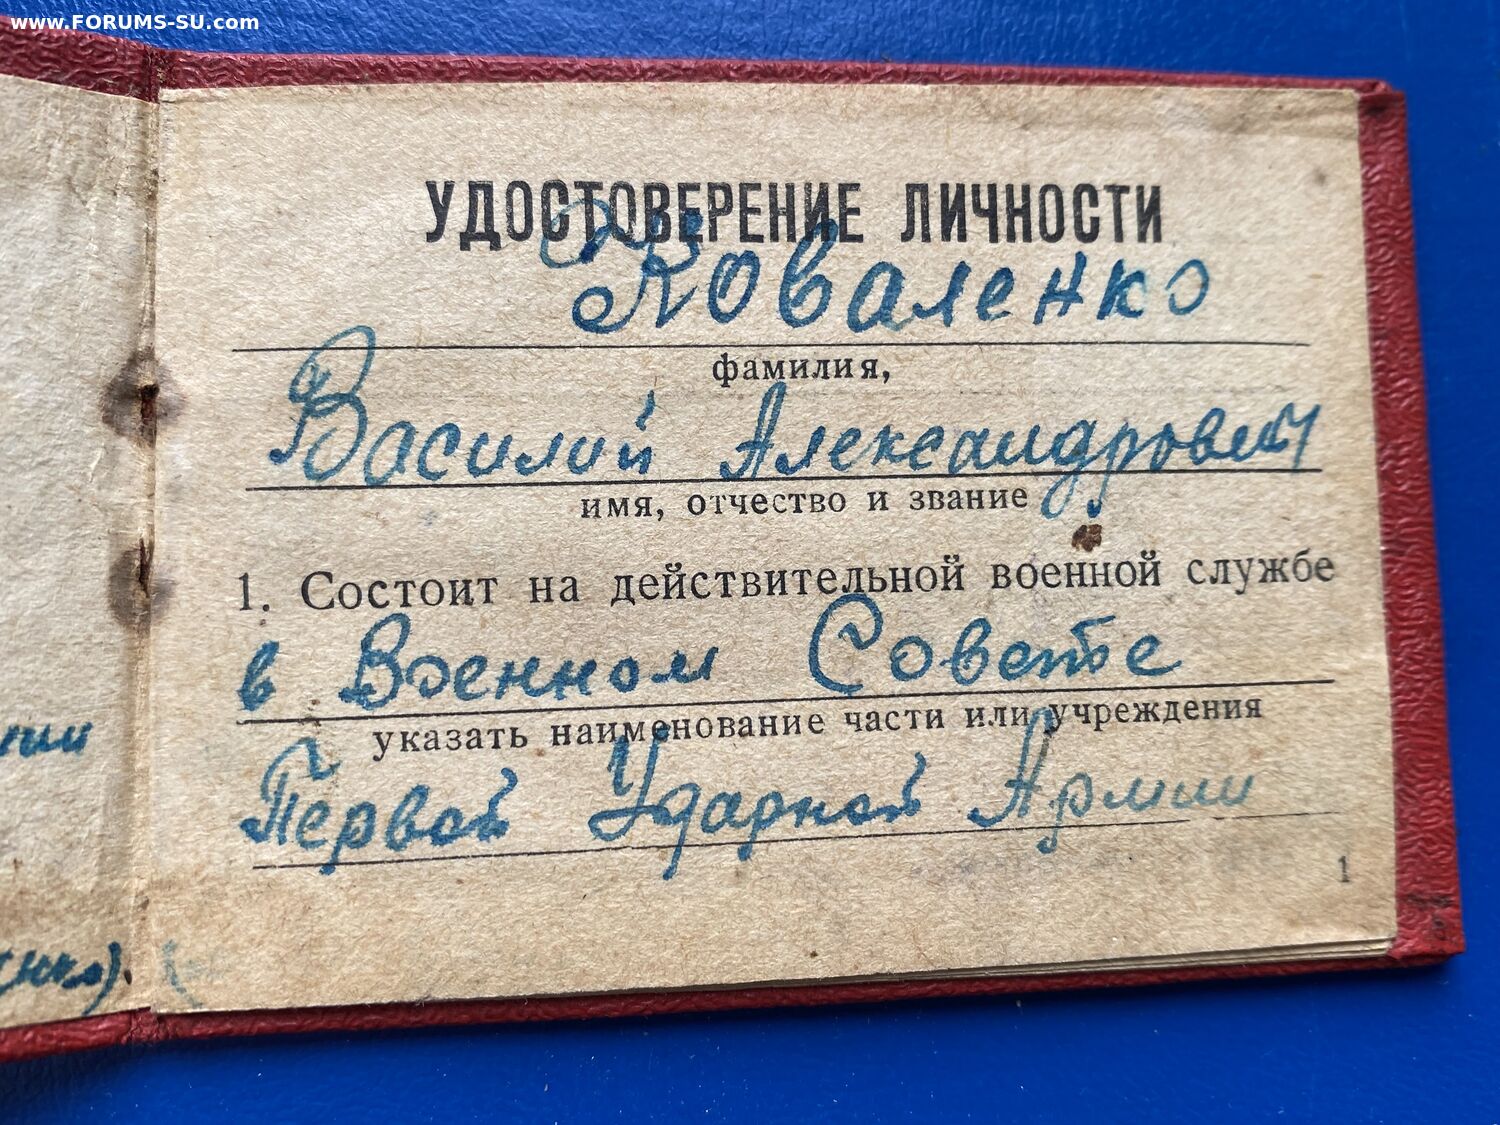 www.FORUMS-SU.com
УДОСТОВЕРЕНИЕ ЛИЧНОСТИ
Коваленко
фамилия,
Василий Александрович
имя, отчество и звание
1. Состоит на действительной военной службе
в Военном Совете
указать наименование части или учреждения
Первой Ударной Армии
1